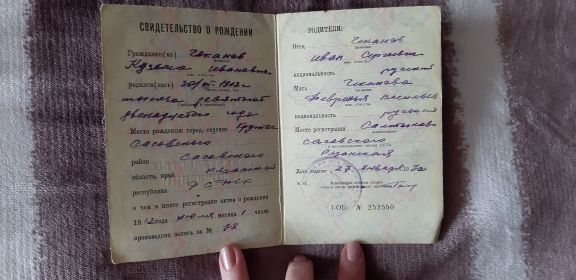 СВИДЕТЕЛЬСТВО О РОЖДЕНИИ
Гражданин(ка) Чеканов
фамилия
Кузьма Иванович
имя, отчество
родился(лась) 30/VI-1912г
тысяча девятьсот
двенадцатого года
Место рождения: город, селение
Сасовского
район Сасовского
область, край Рязанской
республика
о чем в книге регистрации актов о рождении
1912 года июля месяца 1 числа
произведена запись за № 78
РОДИТЕЛИ:
Отец Чеканов
фамилия
Иван Сергеевич
имя, отчество
национальность русский
Мать Чеканова
фамилия
Февронья Васильев
имя, отчество
национальность русская
Место регистрации Салтыково
Сасовского
Рязанская
Дата выдачи 27 января
I-ОБ № 252550